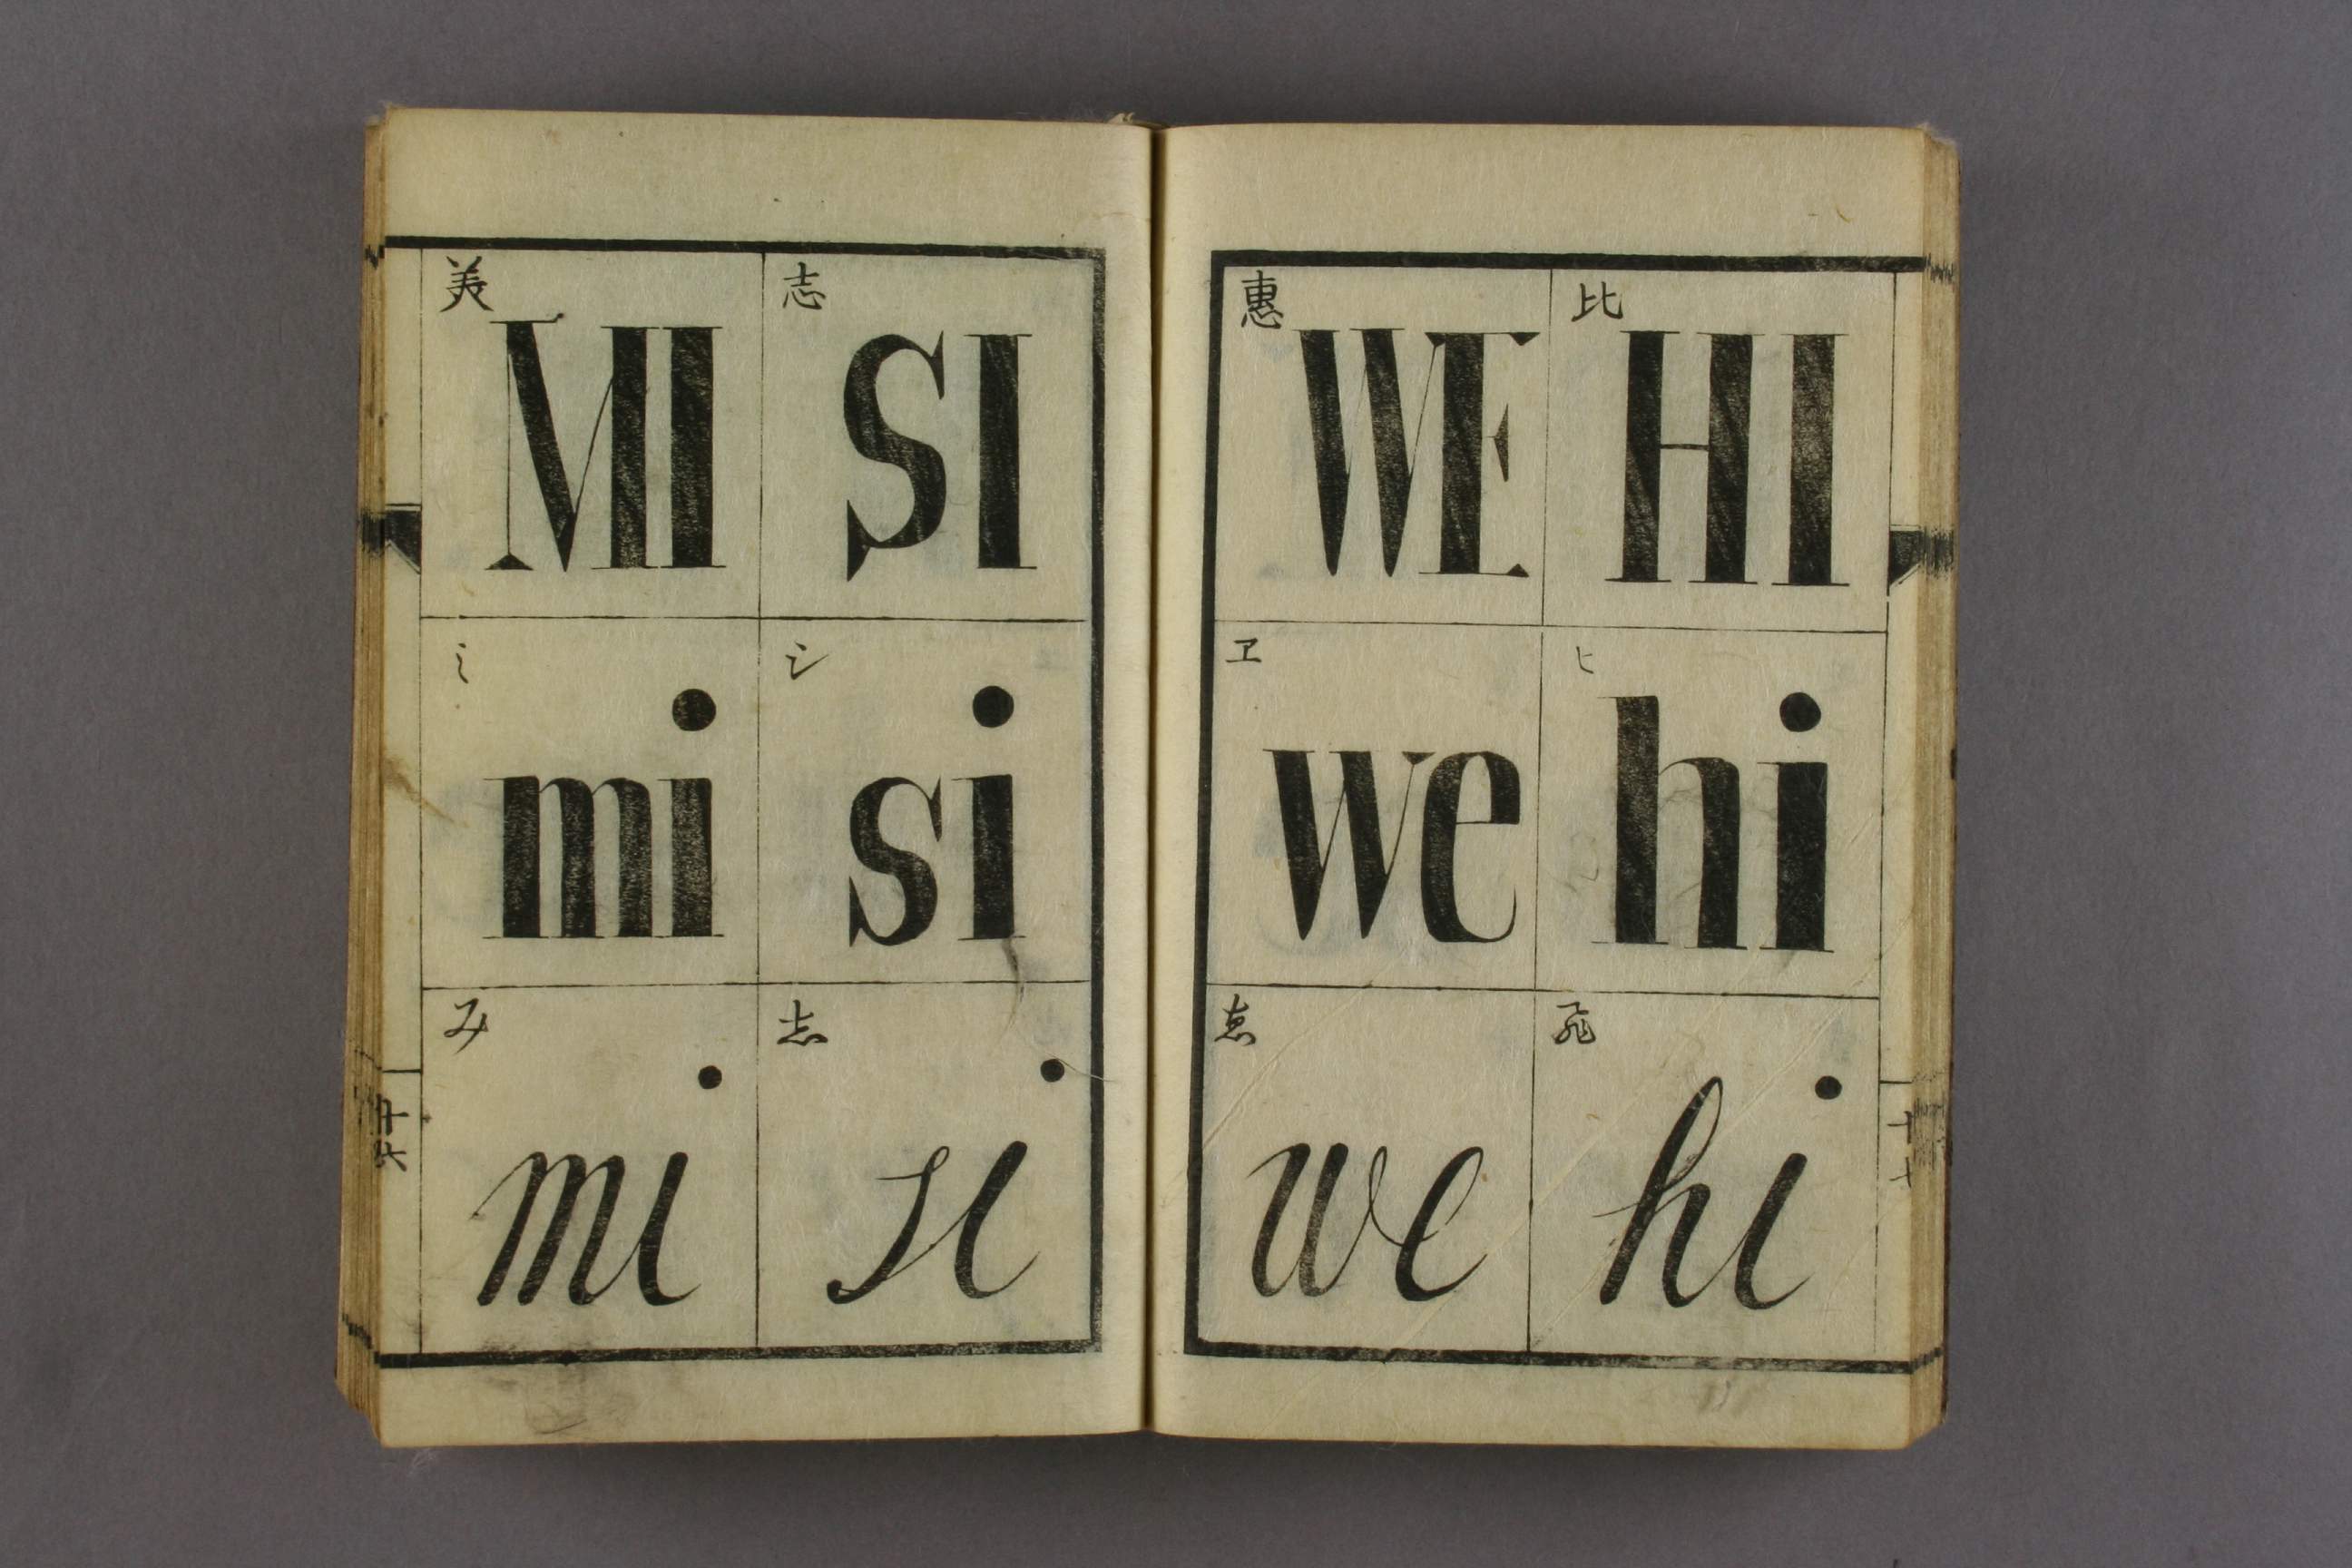 美
MI
志
SI
ミ
mi
シ
si
み
mi
志
si
十六
惠
WE
比
HI
ヱ
we
ヒ
hi
恵
we
飛
hi
十七